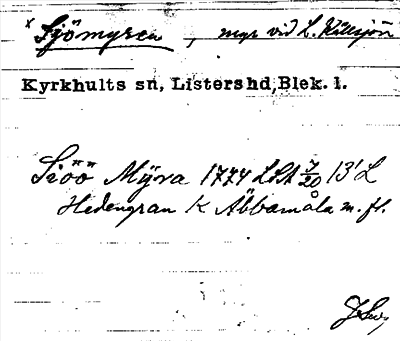 x Sjömyren, myr vid L. Kullsjön
Kyrkhults sn, Listershd, Blek. l.
Siöö Mÿra 1774 LSA 7/20 13' L
Hedengran K Åbbamåla m. fl.